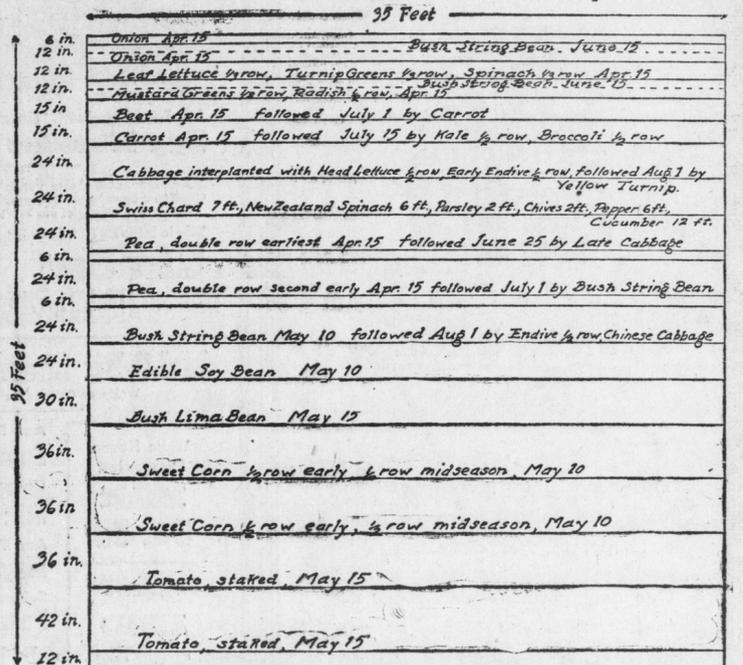 35 Feet
6 in. Onion Apr. 15
12 in. Bush String Bean June 15
Onion Apr. 15
12 in. Leaf Lettuce ½ row, Turnip Greens ½ row, Spinach ½ row Apr. 15
12 in. Bush String Bean June 15
Mustard Greens ½ row, Radish ½ row, Apr. 15
15 in Beet Apr. 15 followed July 1 by Carrot
15 in. Carrot Apr. 15 followed July 15 by Kale ½ row, Broccoli ½ row
24 in. Cabbage interplanted with Head Lettuce ½ row, Early Endive ½ row, followed Aug 1 by
Yellow Turnip.
24 in. Swiss Chard 7 ft., New Zealand Spinach 6 ft., Parsley 2 ft., Chives 2 ft., Pepper 6 ft.,
Cucumber 12 ft.
24 in. Pea, double row earliest Apr. 15 followed June 25 by Late Cabbage
6 in.
24 in. Pea, double row second early Apr. 15 followed July 1 by Bush String Bean
6 in.
24 in. Bush String Bean May 10 followed Aug 1 by Endive ½ row, Chinese Cabbage
24 in. Edible Soy Bean May 10
35 Feet
30 in. Bush Lima Bean May 15
36 in. Sweet Corn ½ row early ½ row midseason, May 10
36 in Sweet Corn ½ row early, ½ row midseason, May 10
36 in. Tomato, staked, May 15
42 in. Tomato, staked, May 15
12 in.